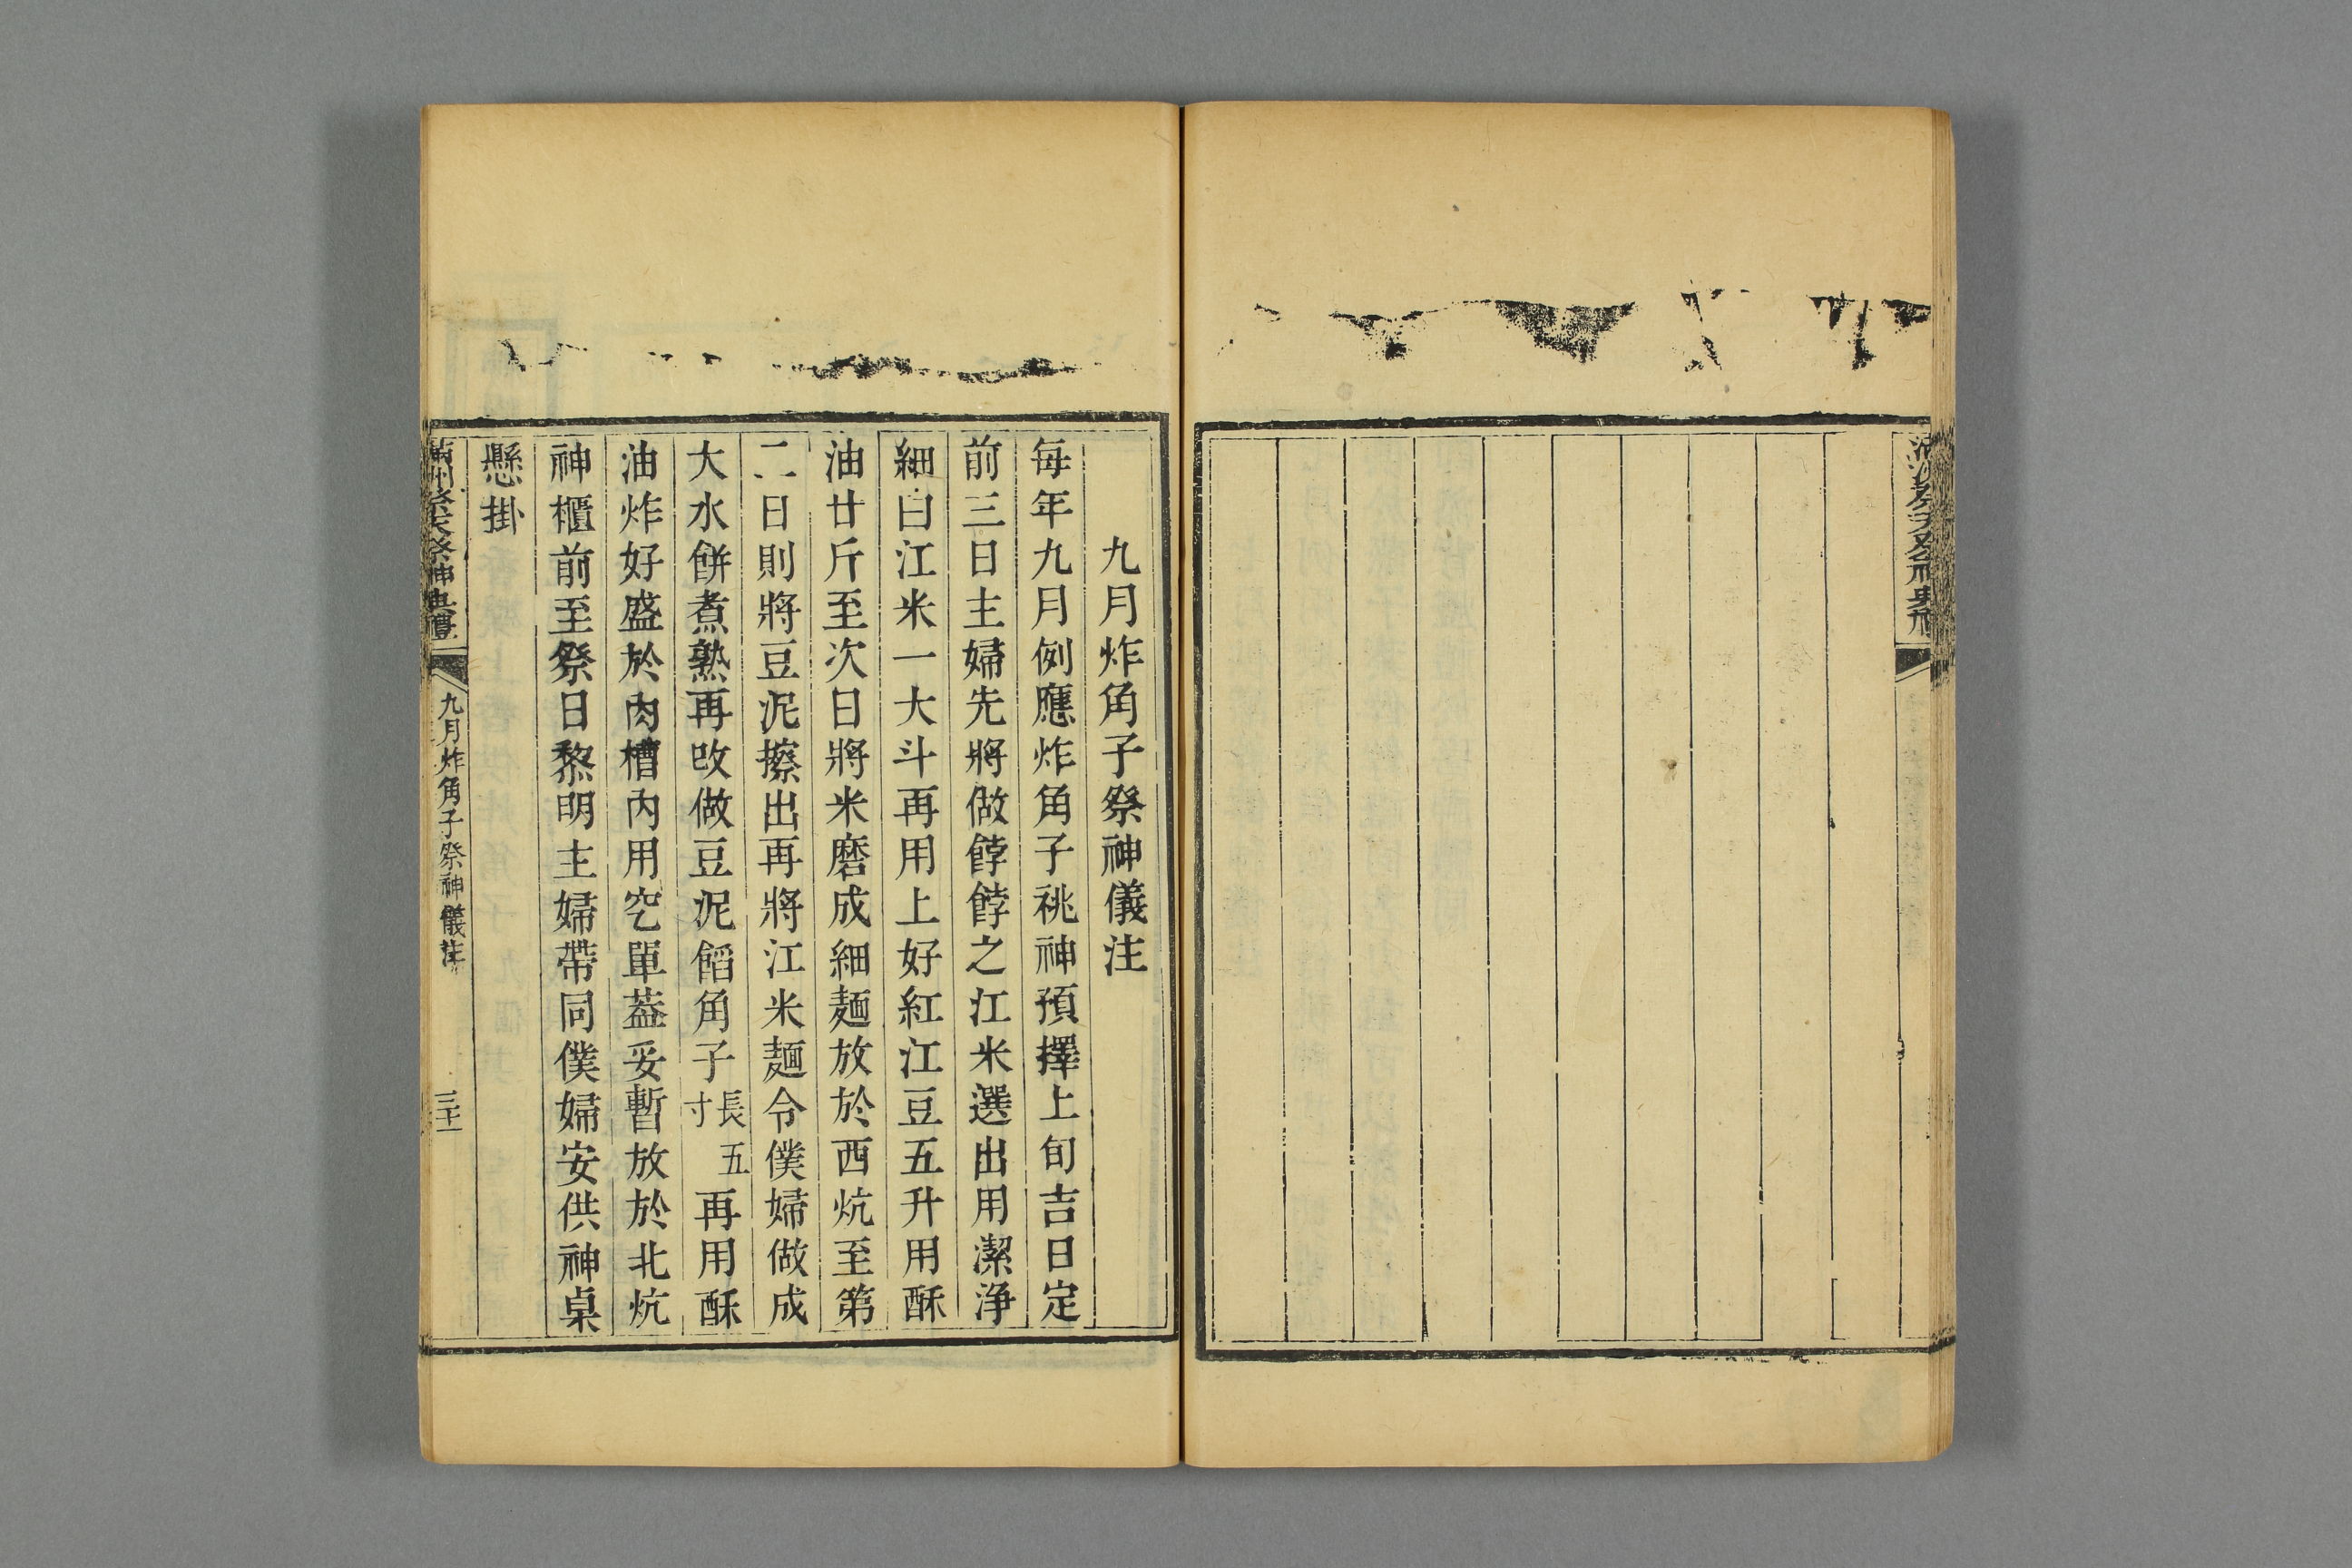 九月炸角子祭神儀注
每年九月例應炸角子祧神預擇上旬吉日定
前三日主婦先將做餑餑之江米選出用潔淨
細白江米一大斗再用上好紅江豆五升用酥
油廿斤至次日將米磨成細麵放於西炕至第
二日則將豆泥擦出再將江米麵令僕婦做成
大水餅煮熟再改做豆泥餡角子長五寸再用酥
油炸好盛於肉槽內用空單蓋妥暫放於北炕
神櫃前至祭日黎明主婦帶同僕婦安供神桌
懸掛
滿洲祭天祭神典禮
九月炸角子祭神儀注